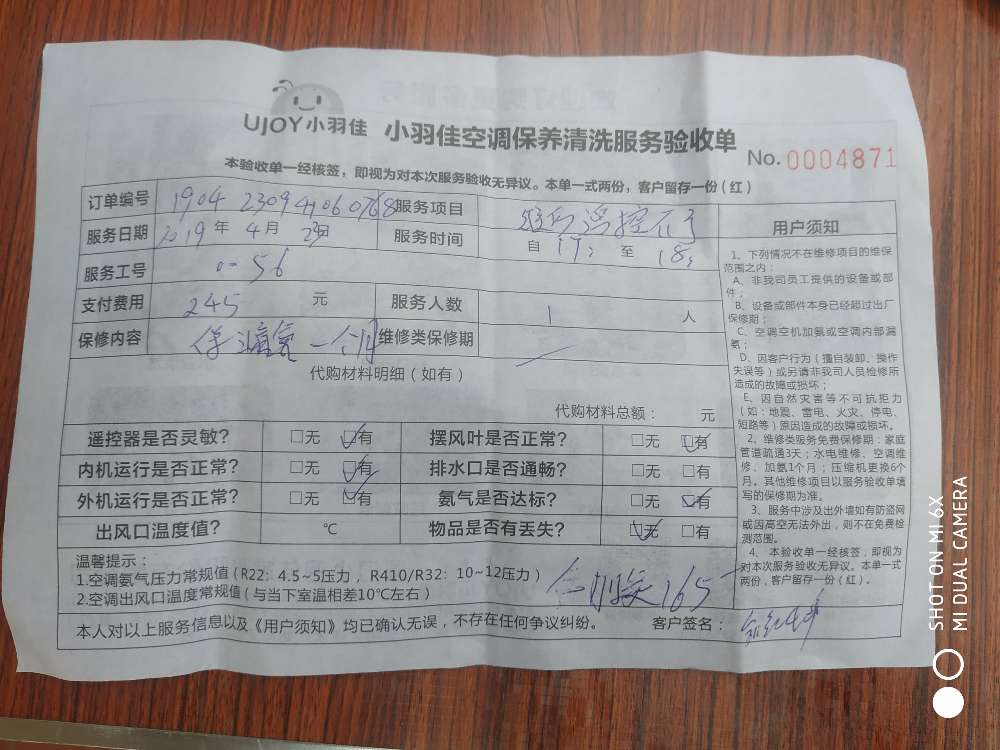 UJOY小羽佳 小羽佳空调保养清洗服务验收单
No.0004871
本验收单一经核签，即视为对本次服务验收无异议。本单一式两份，客户留存一份（红）
订单编号 1904 服务项目
服务日期 2019年4月 日 服务时间 自 17: 至 18:
服务工号 56
支付费用 245 元 服务人数 1 人
保修内容 一个月 维修类保修期
代购材料明细（如有）
代购材料总额： 元
遥控器是否灵敏？ □无 □有 摆风叶是否正常？ □无 □有
内机运行是否正常？ □无 □有 排水口是否通畅？ □无 □有
外机运行是否正常？ □无 □有 氨气是否达标？ □无 □有
出风口温度值？ ℃ 物品是否有丢失？ □无 □有
温馨提示：
1.空调氨气压力常规值（R22：4.5~5压力，R410/R32：10~12压力）
2.空调出风口温度常规值（与当下室温相差10℃左右）
165
本人对以上服务信息以及《用户须知》均已确认无误，不存在任何争议纠纷。 客户签名：
用户须知
1、下列情况不在维修项目的维保
范围之内；
A、非我司员工提供的设备或部
件；
B、设备或部件本身已经超过出厂
保修期；
C、空调空机加氨或空调内部漏
氨；
D、因客户行为（擅自装卸、操作
失误等）或另请非我司人员检修所
造成的故障或损坏；
E、因自然灾害等不可抗拒力
（如：地震、雷电、火灾、停电、
短路等）原因造成的故障或损坏。
2、维修类服务免费保修期：家庭
管道疏通3天；水电维修、空调维
修、加氨1个月；压缩机更换6个
月。其他维修项目以服务验收单填
写的保修期为准。
3、服务中涉及出外墙如有防盗网
或因高空无法外出，则不在免费检
测范围。
4、本验收单一经核签，即视为
对本次服务验收无异议。本单一式
两份，客户留存一份（红）。
SHOT ON MI 6X
MI DUAL CAMERA